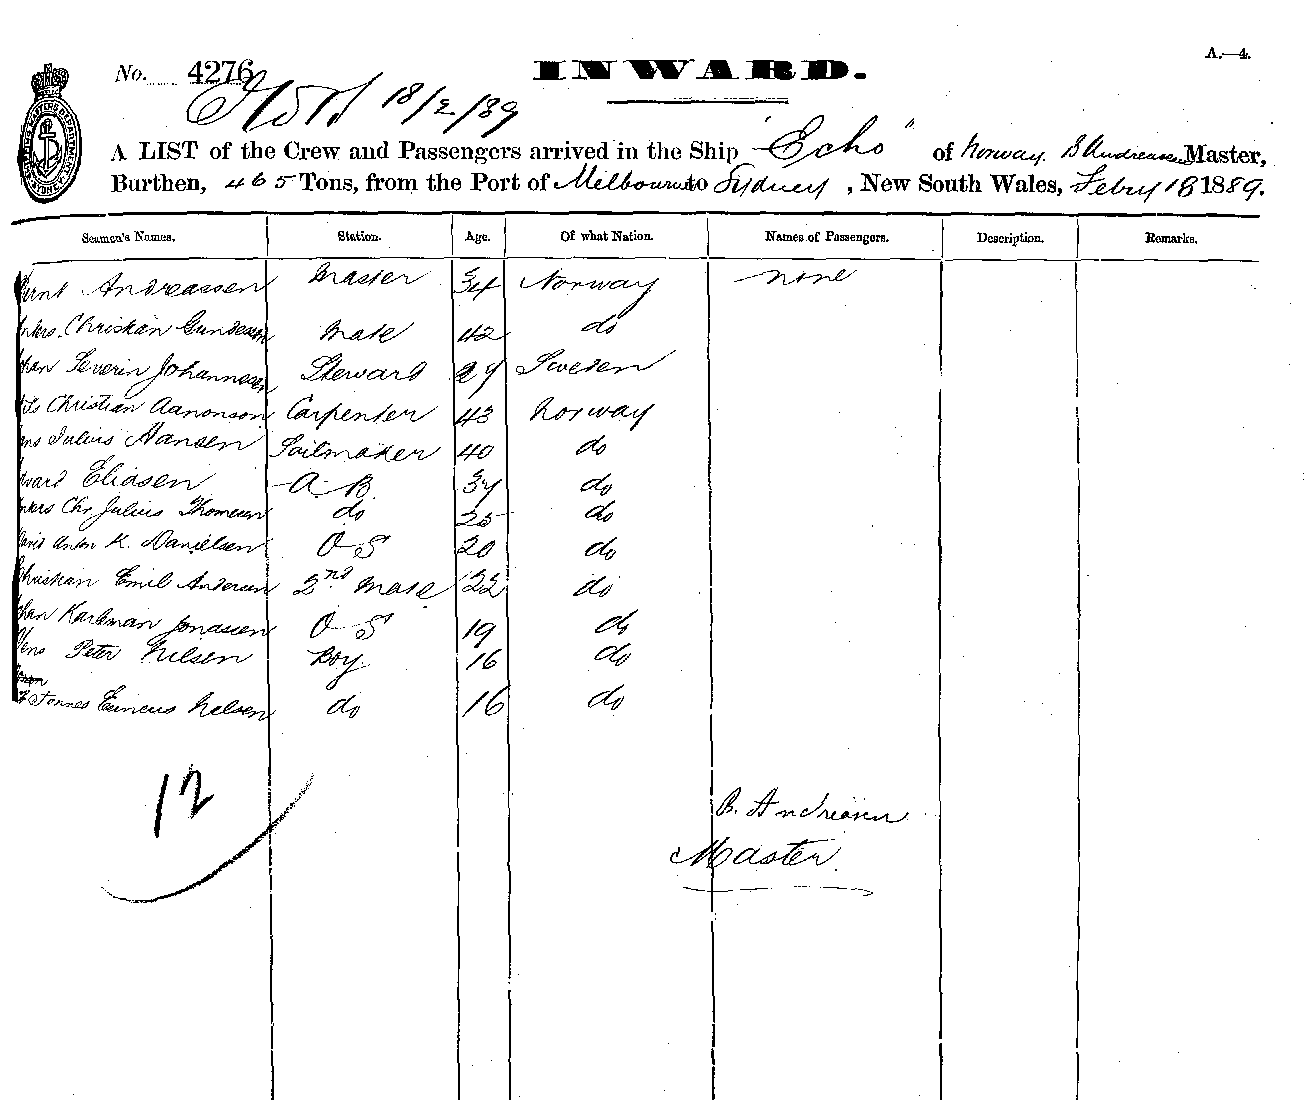 A.—4.
No. 4276
INWARD.
18/2/89
A LIST of the Crew and Passengers arrived in the Ship "Echo" of Norway. B Andreassen Master,
Burthen, 465 Tons, from the Port of Melbourne to Sydney, New South Wales, Febry 18 1889.
Seamen's Names. Station. Age. Of what Nation. Names of Passengers. Description. Remarks.
Andreassen Master 34 Norway none
Christian Gundersen Mate 42 do
Severin Johannesen Steward 29 Sweden
Christian Aanonson Carpenter 43 Norway
Julius Hansen Sailmaker 40 do
Eliasen A.B. 37 do
Chr Julius Thomesen do 25 do
Anton K. Danielsen O S 20 do
Christian Emil Andersen 2nd Mate 22 do
Karlman Jonassen O S 19 do
Peter Nilsen Boy 16 do
Nelsen do 16 do
12
B. Andreassen
Master.